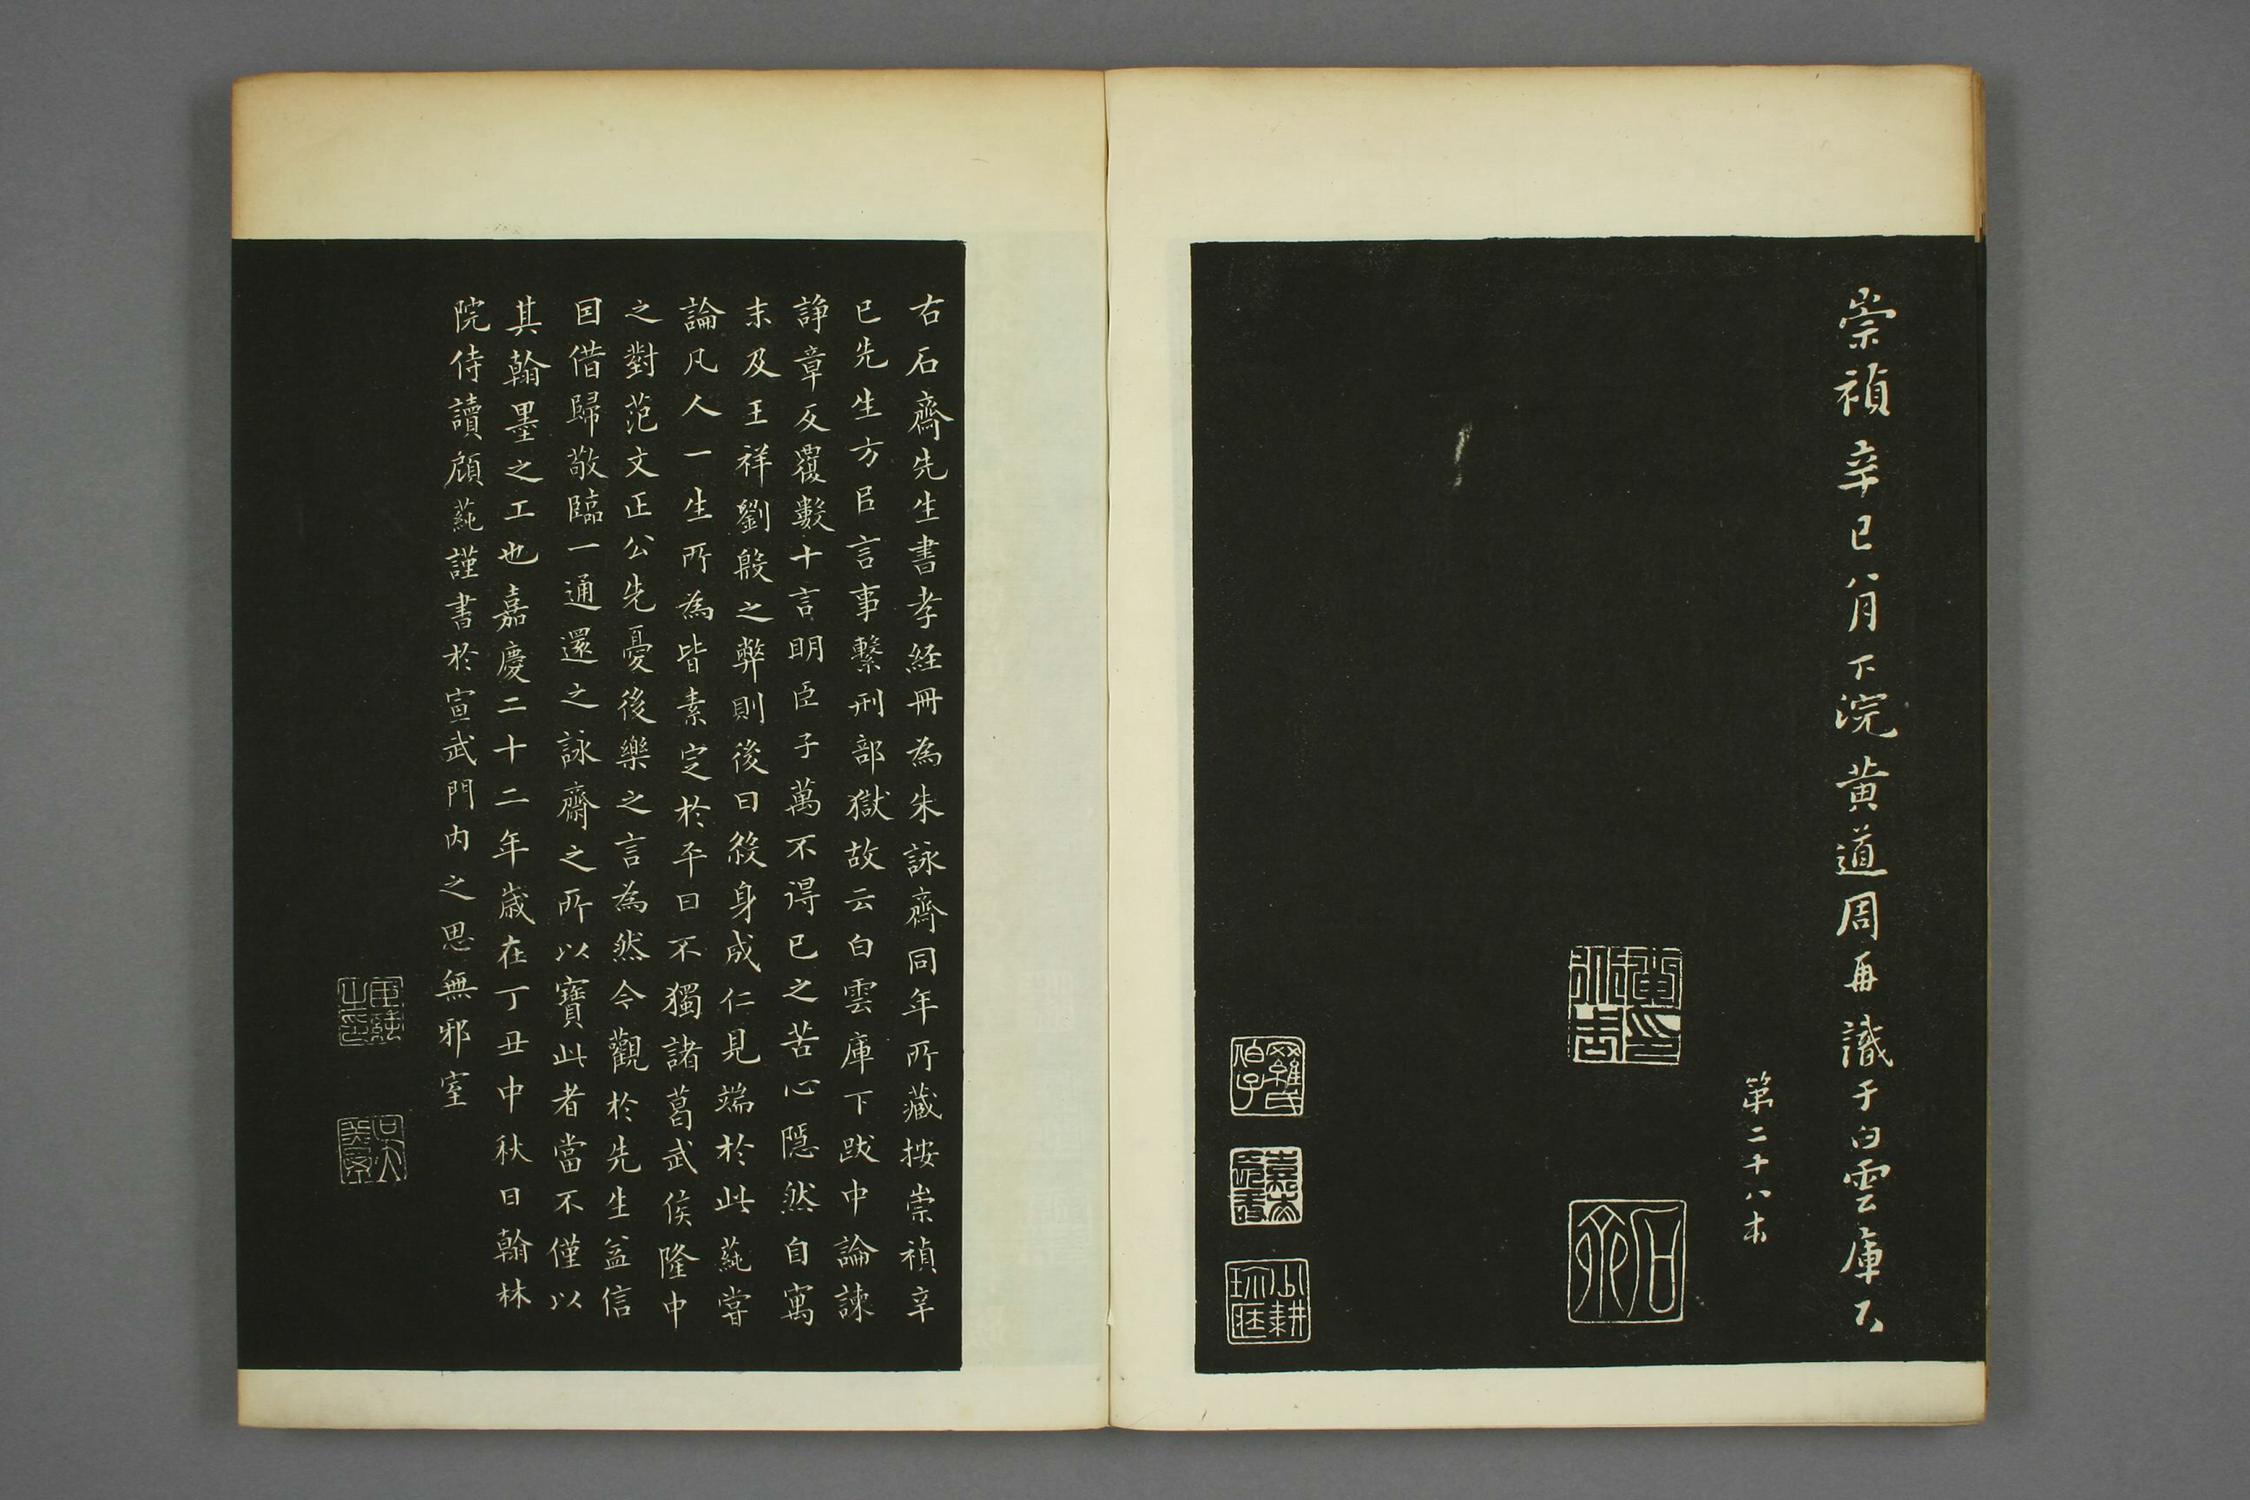 崇禎辛巳八月下浣黃道周再識于白雲庫下
第二十八本
石齋
右石齋先生書孝經冊為朱詠齋同年所藏按崇禎辛
巳先生方㠯言事繫刑部獄故云白雲庫下跋中論諫
諍章反覆數十言明臣子萬不得已之苦心隱然自寓
末及王祥劉殷之弊則後曰殺身成仁見端於此蒓嘗
論凡人一生所為皆素定於平日不獨諸葛武侯隆中
之對范文正公先憂後樂之言為然今觀於先生益信
因借歸敬臨一通還之詠齋之所以寶此者當不僅以
其翰墨之工也嘉慶二十二年歲在丁丑中秋日翰林
院侍讀顧蒓謹書於宣武門內之思無邪室